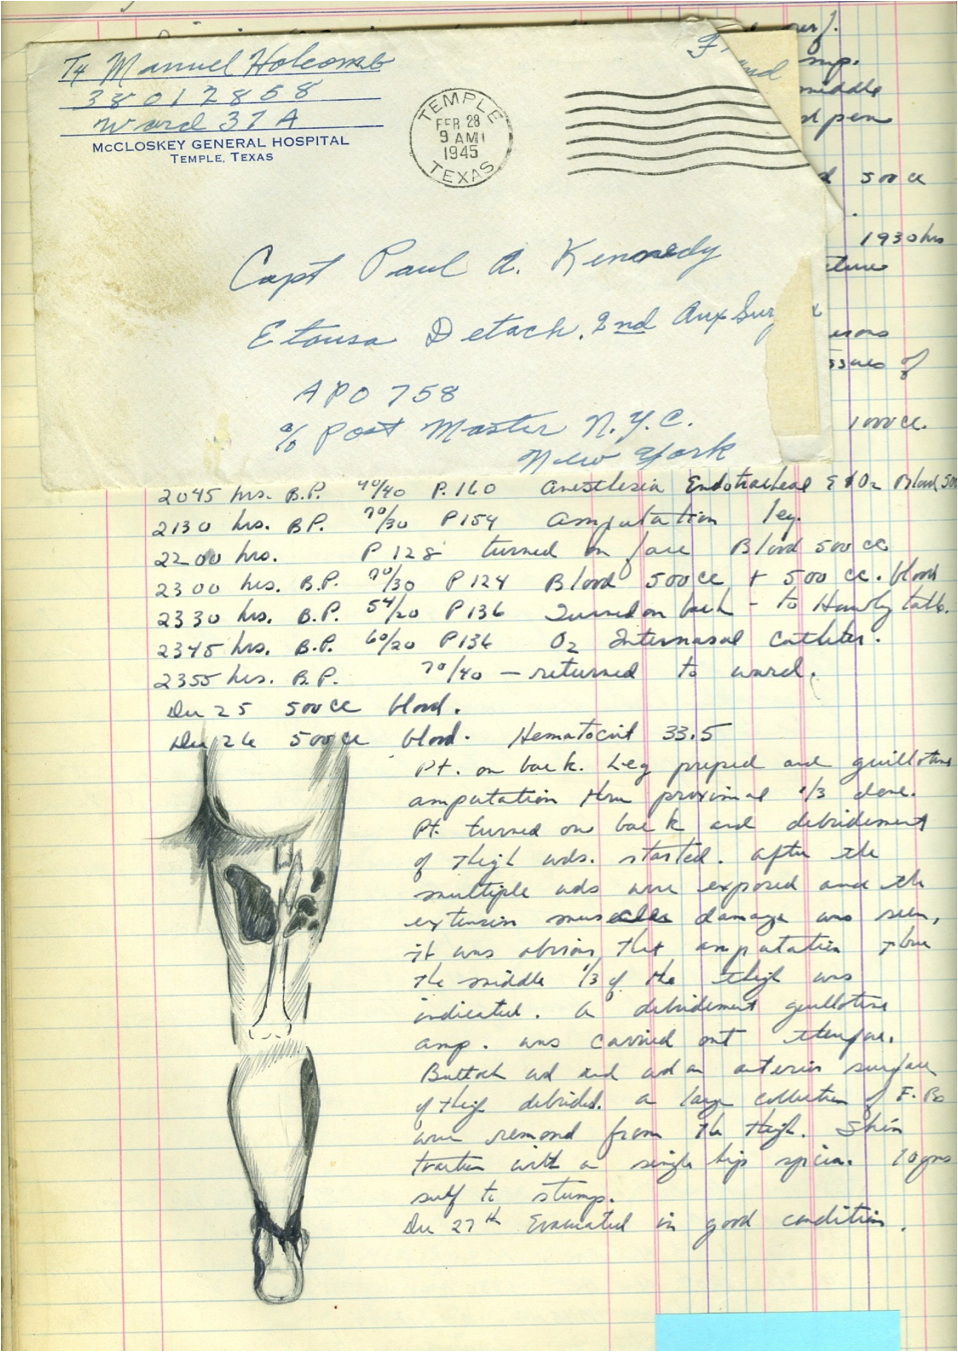 T4 Manuel Holcomb
38012858
Ward 37A
McCLOSKEY GENERAL HOSPITAL
TEMPLE, TEXAS
TEMPLE
FEB 28
9 AM
1945
TEXAS
Capt Paul A. Kennedy
Etousa Detach. 2nd Aux Sur
APO 758
c/o Post Master N.Y.C.
New York
middle
500 cc
1930 hrs
1000 cc.
2045 hrs. B.P. 40 P. 160 Anesthesia Endotracheal E & O2 Blood 500
2130 hrs. B.P. 70/30 P 154 Amputation leg.
2200 hrs. P 128 turned on face Blood 500 cc
2300 hrs. B.P. 70/30 P 124 Blood 500 cc + 500 cc. blood
2330 hrs. B.P. 54/20 P 136 Turned on back - to table.
2345 hrs. B.P. 60/20 P 136 O2 Internasal Catheter.
2355 hrs. B.P. 70/40 — returned to ward.
Dec 25 500 cc blood.
Dec 26 500 cc blood. Hematocrit 33.5
Pt. on back. Leg preped and guillotine
amputation thru proximal 1/3 done.
Pt. turned on back and debridement
of thigh wds. started. After the
multiple wds were exposed and the
extensive muscle damage was seen,
it was obvious that amputation thru
the middle 1/3 of the thigh was
indicated. A debridement guillotine
amp. was carried out
Buttock wd and wd on anterior surface
of thigh debrided. A large collection of F. Bs
were removed from the thigh. Skin
traction with a single hip spica. 10 gms
sulf to stump.
Dec 27th Evacuated in good condition.